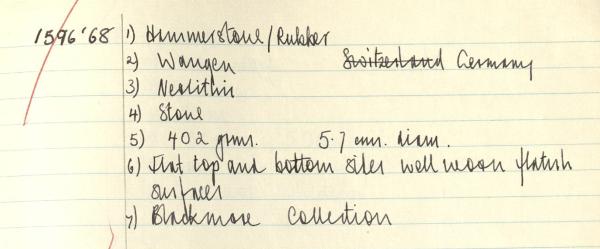 1596'68 1) Hammerstone/Rubber
2) Wangen Switzerland Germany
3) Neolithic
4) Stone
5) 402 gms. 5.7 cms. diam.
6) Flat top and bottom sides well worn flattish
surfaces
7) Blackmore Collection